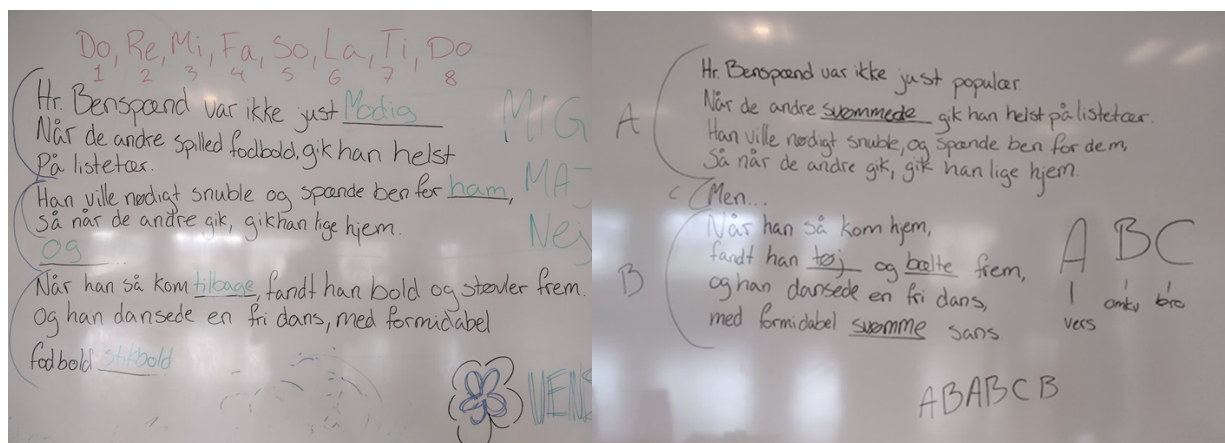 Do, Re, Mi, Fa, So, La, Ti, Do
1 2 3 4 5 6 7 8
Hr. Benspænd var ikke just Modig
Når de andre spilled fodbold, gik han helst
På listetæer.
Han ville nødigt snuble og spænde ben for ham,
Så når de andre gik, gik han lige hjem.
Og
Når han så kom tilbage, fandt han bold og støvler frem.
Og han dansede en fri dans, med formidabel
fodbold stikbold
MIG
MAJ
Nej
VENS
A
Hr. Benspænd var ikke just populær.
Når de andre svømmede gik han helst på listetæer.
Han ville nødigt snuble, og spænde ben for dem,
Så når de andre gik, gik han lige hjem.
C
Men...
B
Når han så kom hjem,
fandt han tøj og bælte frem,
og han dansede en fri dans,
med formidabel svømme sans
A B C
vers omkv bro
ABABCB